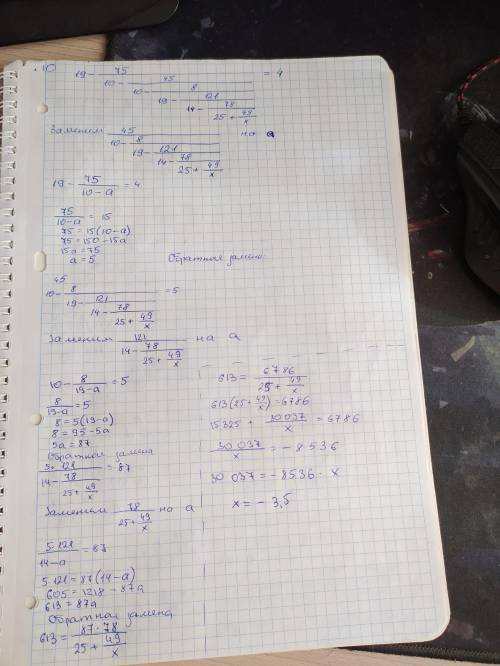 10 19 - 75 / (10 - 45 / (10 - 8 / (19 - 121 / (14 - 78 / (25 + 49/x))))) = 4
Заменим 45 / (10 - 8 / (19 - 121 / (14 - 78 / (25 + 49/x)))) на a
19 - 75/(10-a) = 4
75/(10-a) = 15
75 = 15(10-a)
75 = 150 - 15a
15a = 75
a = 5
Обратная замена
45 / (10 - 8 / (19 - 121 / (14 - 78 / (25 + 49/x)))) = 5
Заменим 121 / (14 - 78 / (25 + 49/x)) на a
10 - 8/(19-a) = 5
8/(19-a) = 5
8 = 5(19-a)
8 = 95 - 5a
5a = 87
Обратная замена
5·121 / (14 - 78 / (25 + 49/x)) = 87
Заменим 78 / (25 + 49/x) на a
5·121 / (14-a) = 87
5·121 = 87(14-a)
605 = 1218 - 87a
613 = 87a
Обратная замена
613 = 87·78 / (25 + 49/x)
613 = 6786 / (25 + 49/x)
613(25 + 49/x) = 6786
15325 + 30037/x = 6786
30037/x = -8536
30 037 = -8536 · x
x = -3,5